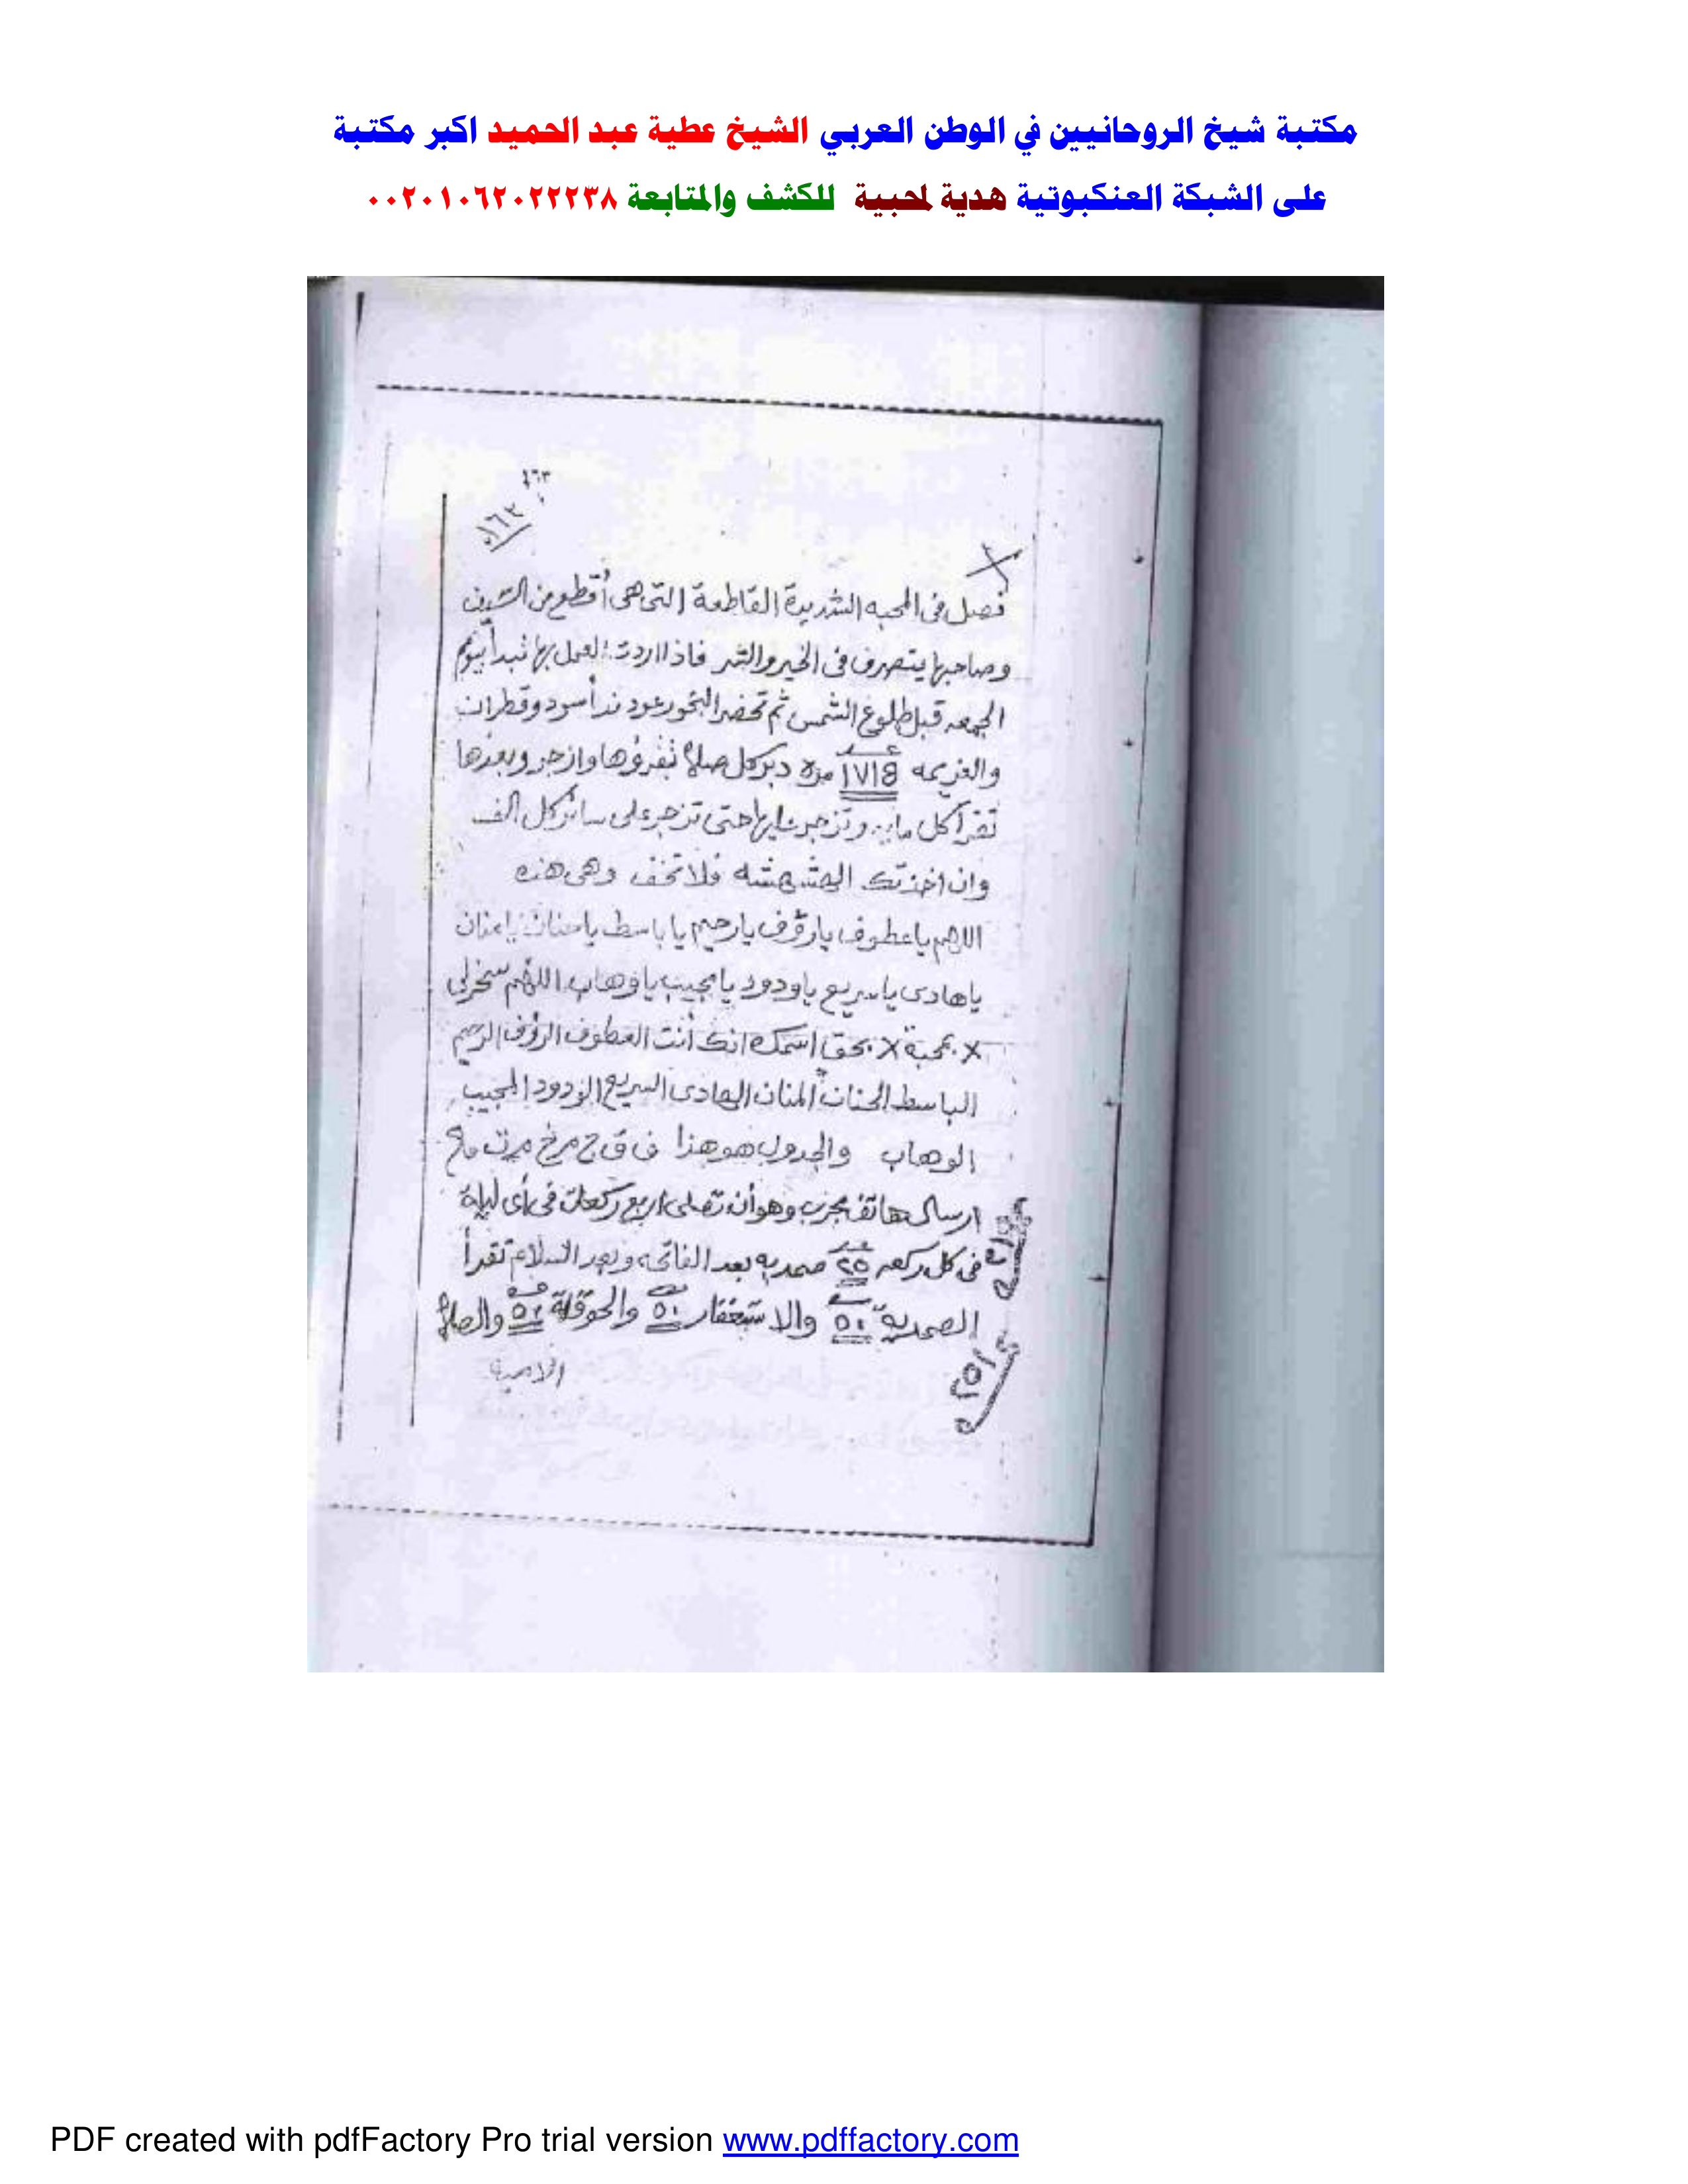 مكتبة شيخ الروحانيين في الوطن العربي الشيخ عطية عبد الحميد اكبر مكتبة
على الشبكة العنكبوتية هدية لمحبية للكشف والمتابعة ٠٠٢٠١٠٦٢٠٢٢٢٣٨
١٦٣
١٦٣
فصل فى المحبه الشديدة القاطعة التى هى أقطع من
وصاحبها يتصرف فى الخير والشر فاذا اردت العمل بها تبدأ بيوم
الجمعه قبل طلوع الشمس ثم تحضر البخور عود ند أسود وقطران
والعزيمه مره دبر كل صلاة تقرؤها وازجر وبعدها
تقرأ كل وتزجر عليها حتى تزجر على سائر كل الف
وان اخذتك فلا تخف وهى هذه
اللهم ياعطوف يارؤف يارحيم يا باسط ياحنان يامنان
ياهادى ياسريع ياودود يا مجيب ياوهاب اللهم سخرلى
x بمحبة x بحق اسمك انك أنت العطوف الرؤف الرحيم
الباسط الحنان المنان الهادى السريع الودود المجيب
الوهاب والجدول هو هذا
ارسال هاتف مجرب وهو أن تصلى اربع ركعات فى أى ليلة
فى كل ركعه عدد ٢٥ صمديه بعد الفاتحه وبعد السلام تقرأ
الصمدية ٥٠ والاستغفار ٥٠ والحوقلة ٥٠ والصلاة
الامية